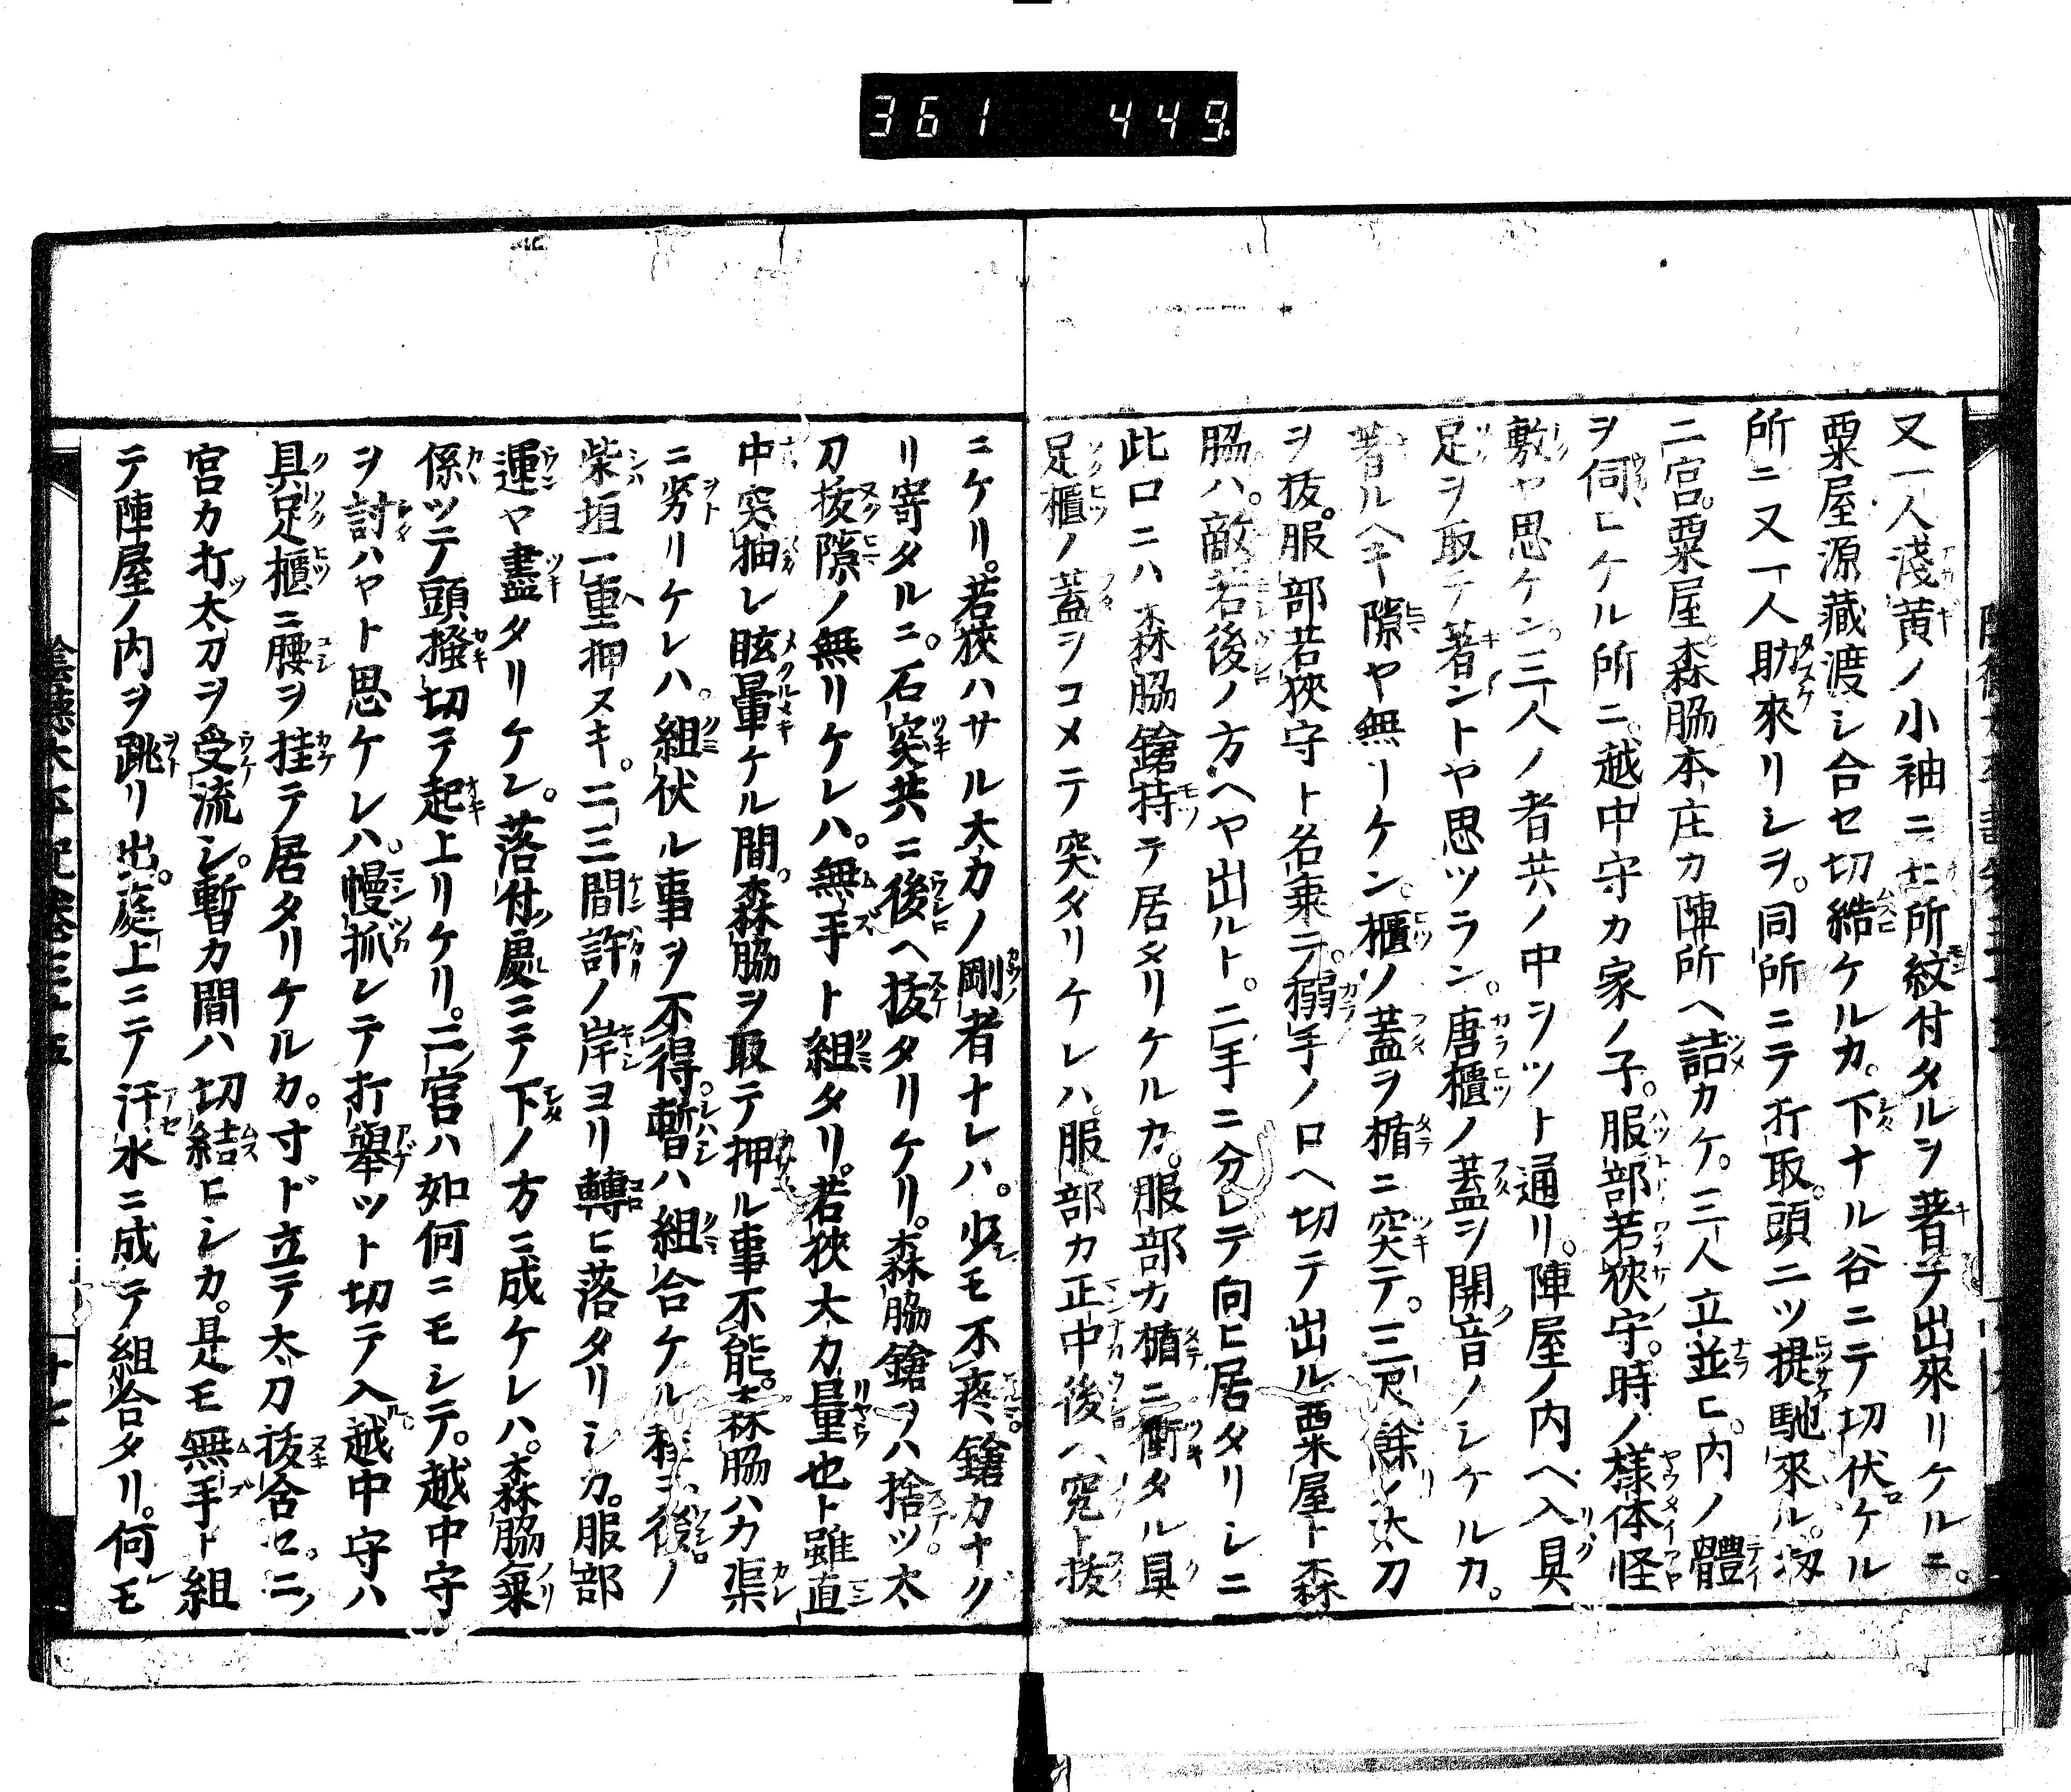 361 449
又一人淺黃ノ小袖ニ七所紋付タルヲ著テ出來リケルニ。
粟屋源藏渡シ合セ切結ケルカ。下ナル谷ニテ切伏ケル
所ニ又一人助來リシヲ。同所ニテ打取。頭二ツ提馳來ル。
二宮。粟屋森脇本庄カ陣所ヘ詰カケ。三人立並ヒ。内ノ體
ヲ伺ヒケル所ニ。越中守カ家ノ子。服部若狹守。時ノ樣体怪
敷ヤ思ケン。三人ノ者共ノ中ヲツト通リ。陣屋ノ内ヘ入具
足ヲ取テ著ントヤ思ツラン。唐櫃ノ蓋ヲ開ク音ノシケルカ。
著ルヘキ隙ヤ無リケン。櫃ノ蓋ヲ楯ニ突テ。三尺餘ノ太刀
ヲ抜。服部若狹守ト名乘テ。搦手ノ口ヘ切テ出ル粟屋ト森
脇ハ。敵若後ノ方ヘヤ出ルト。二手ニ分レテ向ヒ居タリシニ
此口ニハ森脇鎗持テ居タリケルカ。服部カ楯ニ衝タル具
足櫃ノ蓋ヲコメテ突タリケレハ。服部カ正中後ヘ突ト拔
ニケリ。若狹ハサル大力ノ剛者ナレハ。少モ不疼鎗カヤグ
リ寄タルニ。石突共ニ後ヘ拔タリケリ。森脇鎗ヲハ捨ツ太
刀拔隙ノ無リケレハ。無手ト組タリ。若狹大力量也ト雖直
中突抽レ眩暈ケル間。森脇ヲ取テ押ル事不能。森脇ハカ渠
ニ劣リケレハ。組伏ル事ヲ不得。暫ハ組合ケル程ニ後ノ
柴垣一重押ヌキ。二三間許ノ岸ヨリ轉ヒ落タリシカ。服部
運ヤ盡タリケレ。落付處ニテ下ノ方ニ成ケレハ。森脇乘
係ツテ頭搔切テ起上リケリ。二宮ハ如何ニモシテ。越中守
ヲ討ハヤト思ケレハ。幔抓レテ打擧ツト切テ入越中守ハ
具足櫃ニ腰ヲ挂テ居タリケルカ。寸ド立テ太刀拔合セ。二
宮カ打太刀ヲ受流シ。暫カ間ハ切結ヒシカ。是モ無手ト組
テ陣屋ノ内ヲ跳リ出。庭上ニテ汗水ニ成テ組合タリ。何モ